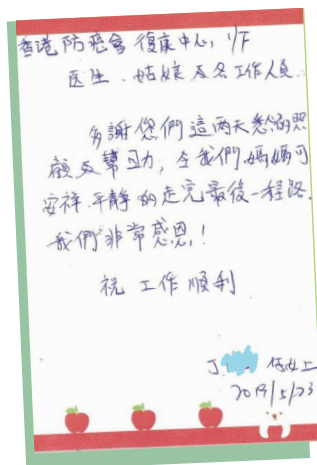 香港防癆會復康中心, 1/F
醫生、姑娘及各工作人員:
多謝您們這两天悉心的照
顧及幫助, 令我們媽媽可
安祥、平靜的走完最後一程路,
我們非常感恩!
祝 工作順利
J
上
2019/5/23